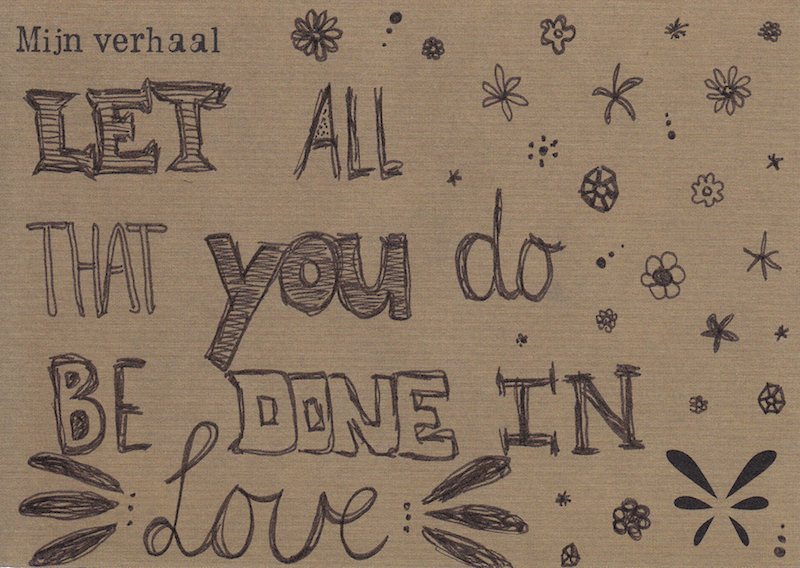 Mijn verhaal
LET ALL
THAT you do
BE DONE IN
Love